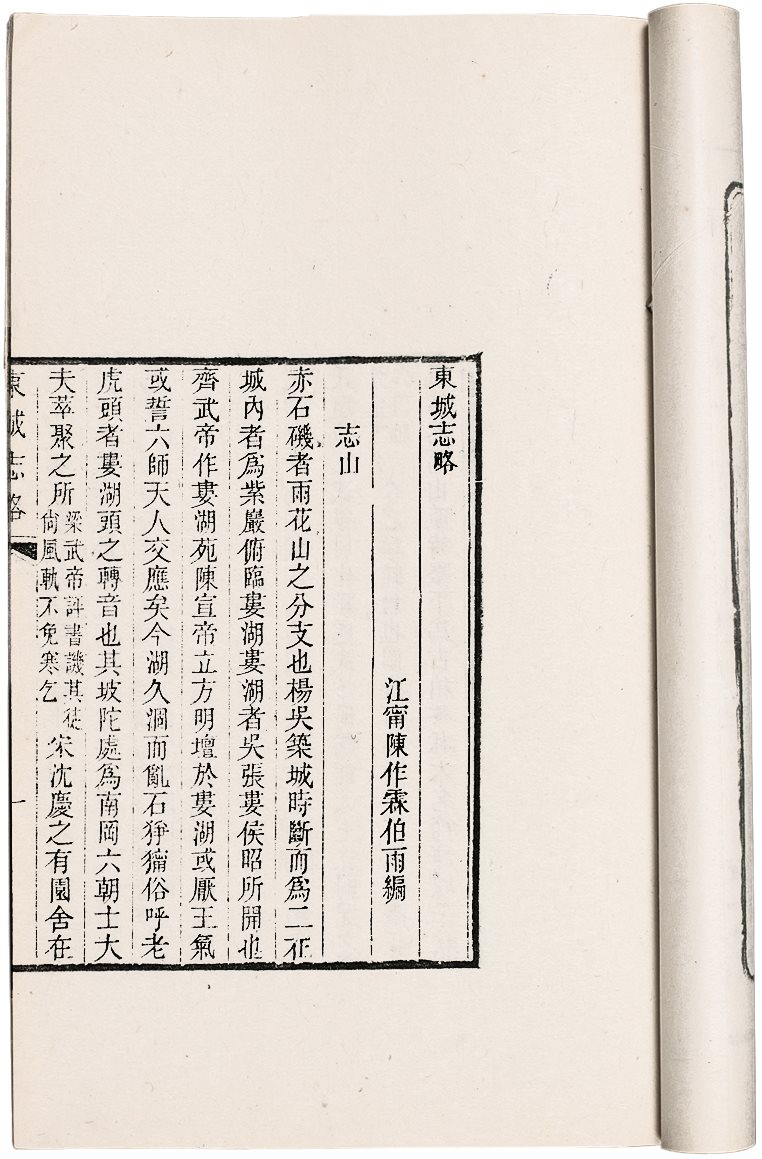 東城志略
江甯陳作霖伯雨編
志山
赤石磯者雨花山之分支也楊吳築城時斷而爲二在
城內者爲紫巖俯臨婁湖婁湖者吳張婁侯昭所開也
齊武帝作婁湖苑陳宣帝立方明壇於婁湖或厭王氣
或誓六師天人交應矣今湖久涸而亂石猙獰俗呼老
虎頭者婁湖頭之轉音也其坡陀處爲南岡六朝士大
夫萃聚之所
梁武帝評書譏其徒
尙風軌不免寒乞
宋沈慶之有園舍在
東城志略
一